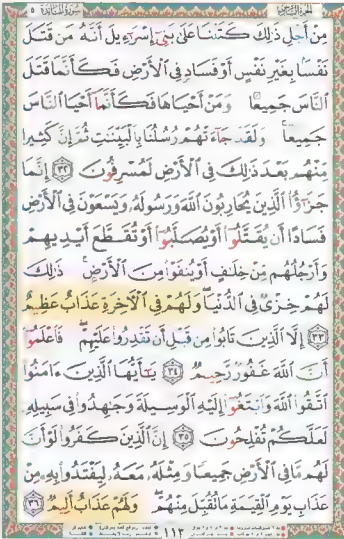 سُورَةُ المَائِدَةِ ٥
مِنْ أَجْلِ ذَٰلِكَ كَتَبْنَا عَلَىٰ بَنِىٓ إِسْرَٰٓءِيلَ أَنَّهُۥ مَن قَتَلَ
نَفْسًۢا بِغَيْرِ نَفْسٍ أَوْ فَسَادٍ فِى ٱلْأَرْضِ فَكَأَنَّمَا قَتَلَ
ٱلنَّاسَ جَمِيعًا وَمَنْ أَحْيَاهَا فَكَأَنَّمَآ أَحْيَا ٱلنَّاسَ
جَمِيعًا ۚ وَلَقَدْ جَآءَتْهُمْ رُسُلُنَا بِٱلْبَيِّنَٰتِ ثُمَّ إِنَّ كَثِيرًا
مِّنْهُم بَعْدَ ذَٰلِكَ فِى ٱلْأَرْضِ لَمُسْرِفُونَ ٣٢ إِنَّمَا
جَزَٰٓؤُا۟ ٱلَّذِينَ يُحَارِبُونَ ٱللَّهَ وَرَسُولَهُۥ وَيَسْعَوْنَ فِى ٱلْأَرْضِ
فَسَادًا أَن يُقَتَّلُوٓا۟ أَوْ يُصَلَّبُوٓا۟ أَوْ تُقَطَّعَ أَيْدِيهِمْ
وَأَرْجُلُهُم مِّنْ خِلَٰفٍ أَوْ يُنفَوْا۟ مِنَ ٱلْأَرْضِ ۚ ذَٰلِكَ
لَهُمْ خِزْىٌ فِى ٱلدُّنْيَا ۖ وَلَهُمْ فِى ٱلْءَاخِرَةِ عَذَابٌ عَظِيمٌ
٣٣ إِلَّا ٱلَّذِينَ تَابُوا۟ مِن قَبْلِ أَن تَقْدِرُوا۟ عَلَيْهِمْ ۖ فَٱعْلَمُوٓا۟
أَنَّ ٱللَّهَ غَفُورٌ رَّحِيمٌ ٣٤ يَٰٓأَيُّهَا ٱلَّذِينَ ءَامَنُوا۟
ٱتَّقُوا۟ ٱللَّهَ وَٱبْتَغُوٓا۟ إِلَيْهِ ٱلْوَسِيلَةَ وَجَٰهِدُوا۟ فِى سَبِيلِهِۦ
لَعَلَّكُمْ تُفْلِحُونَ ٣٥ إِنَّ ٱلَّذِينَ كَفَرُوا۟ لَوْ أَنَّ
لَهُم مَّا فِى ٱلْأَرْضِ جَمِيعًا وَمِثْلَهُۥ مَعَهُۥ لِيَفْتَدُوا۟ بِهِۦ مِنْ
عَذَابِ يَوْمِ ٱلْقِيَٰمَةِ مَا تُقُبِّلَ مِنْهُمْ ۖ وَلَهُمْ عَذَابٌ أَلِيمٌ ٣٦
١١٣